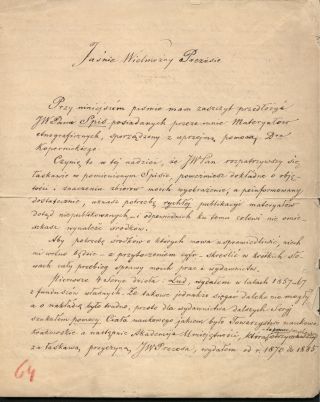 Jaśnie Wielmożny Prezesie
Przy niniejszem piśmie mam zaszczyt przedłożyć
JW Panu Spis posiadanych przezemnie Materyałów
etnograficznych, sporządzony z uprzejmą pomocą Dra
Kopernickiego.
Czynię to w tej nadziei, że JW Pan rozpatrzywszy się
łaskawie w pomienionym Spisie, poweźmiesz dokładne o obję-
tości i znaczeniu zbiorów moich wyobrażenie, a poinformowany
dostatecznie, uznasz potrzebę rychłej publikacyi materyałów
dotąd niepublikowanych, i odpowiednich ku temu celowi nie omie-
szkasz wynaleźć środków.
Aby potrzebę środków o których mowa usprawiedliwić, niech
mi wolno będzie z przytoczeniem cyfr skreślić w krótkich sło-
wach cały przebieg sprawy mojej prac i wydawnictw.
Pierwsze 4 Serye dzieła: Lud, wydałem w latach 1857-67
z funduszów własnych. Że takowe jednakże sięgać daleko nie mogły
a o nakładcę było trudno, przeto dla wydawnictwa dalszych Seryj
szukałem pomocy. Ciała naukowego jakiem było Towarzystwo naukowe
krakowskie a następnie Akademija Umiejętności, którą otrzymawszy
za łaskawą przyczyną JW Prezesa, wydałem od r. 1870 do 1885
64